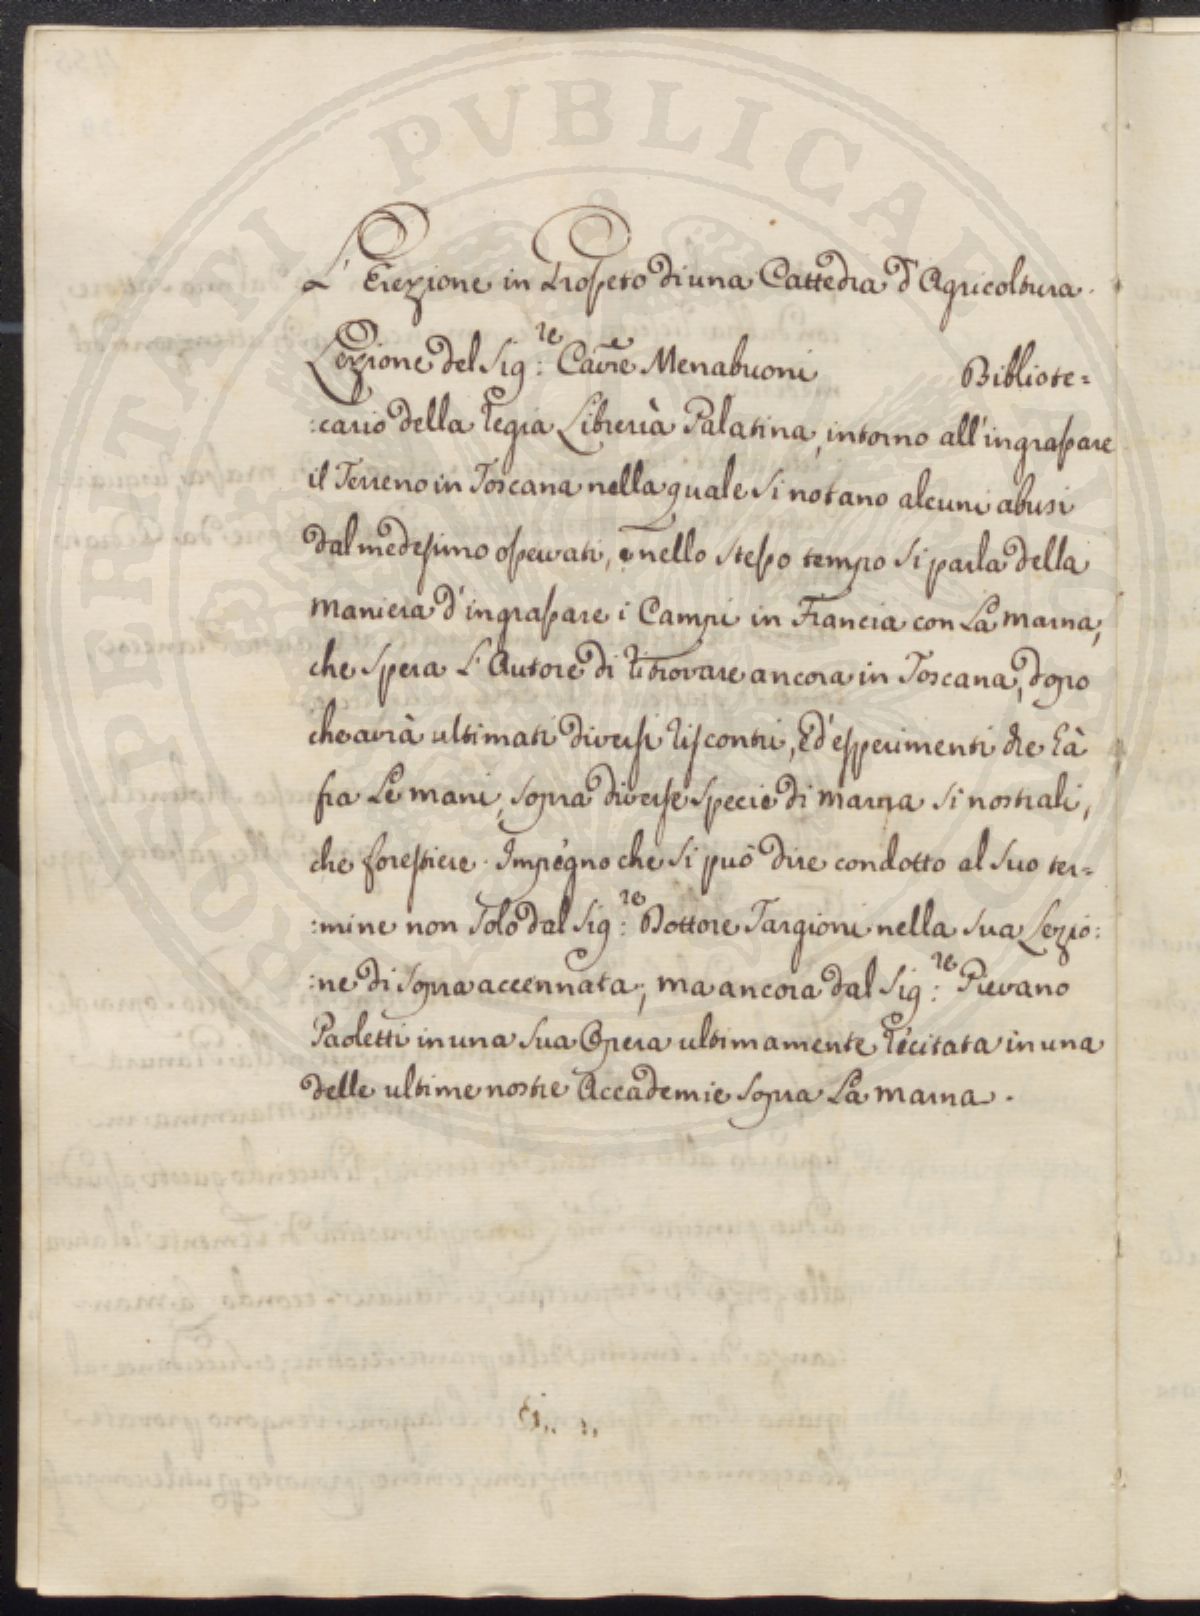 L'Erezione in Prospeto di una Cattedra d'Agricoltura.
Lezione del Sig:re Cav:re Menabuoni Bibliote=
:cario della Regia Libreria Palatina, intorno all'ingrassare
il Terreno in Toscana nella quale si notano alcuni abusi
dal medesimo osservati, e nello stesso tempo si parla della
maniera d'ingrassare i Campi in Francia con La marna,
che spera L'Autore di ritrovare ancora in Toscana, dopo
che avrà ultimati diversi riscontri, ed'esperimenti che hà
fra Le mani, sopra diverse specie di marna si nostrali,
che forestiere. Impegno che si può dire condotto al suo ter=
:mine non solo dal Sig:re Dottore Targioni nella sua Lezio:
:ne di sopra accennata, ma ancora dal Sig:re Pievano
Paoletti in una sua Opera ultimamente recitata in una
delle ultime nostre Accademie sopra La marna.
PROSPERITATI PVBLICAE